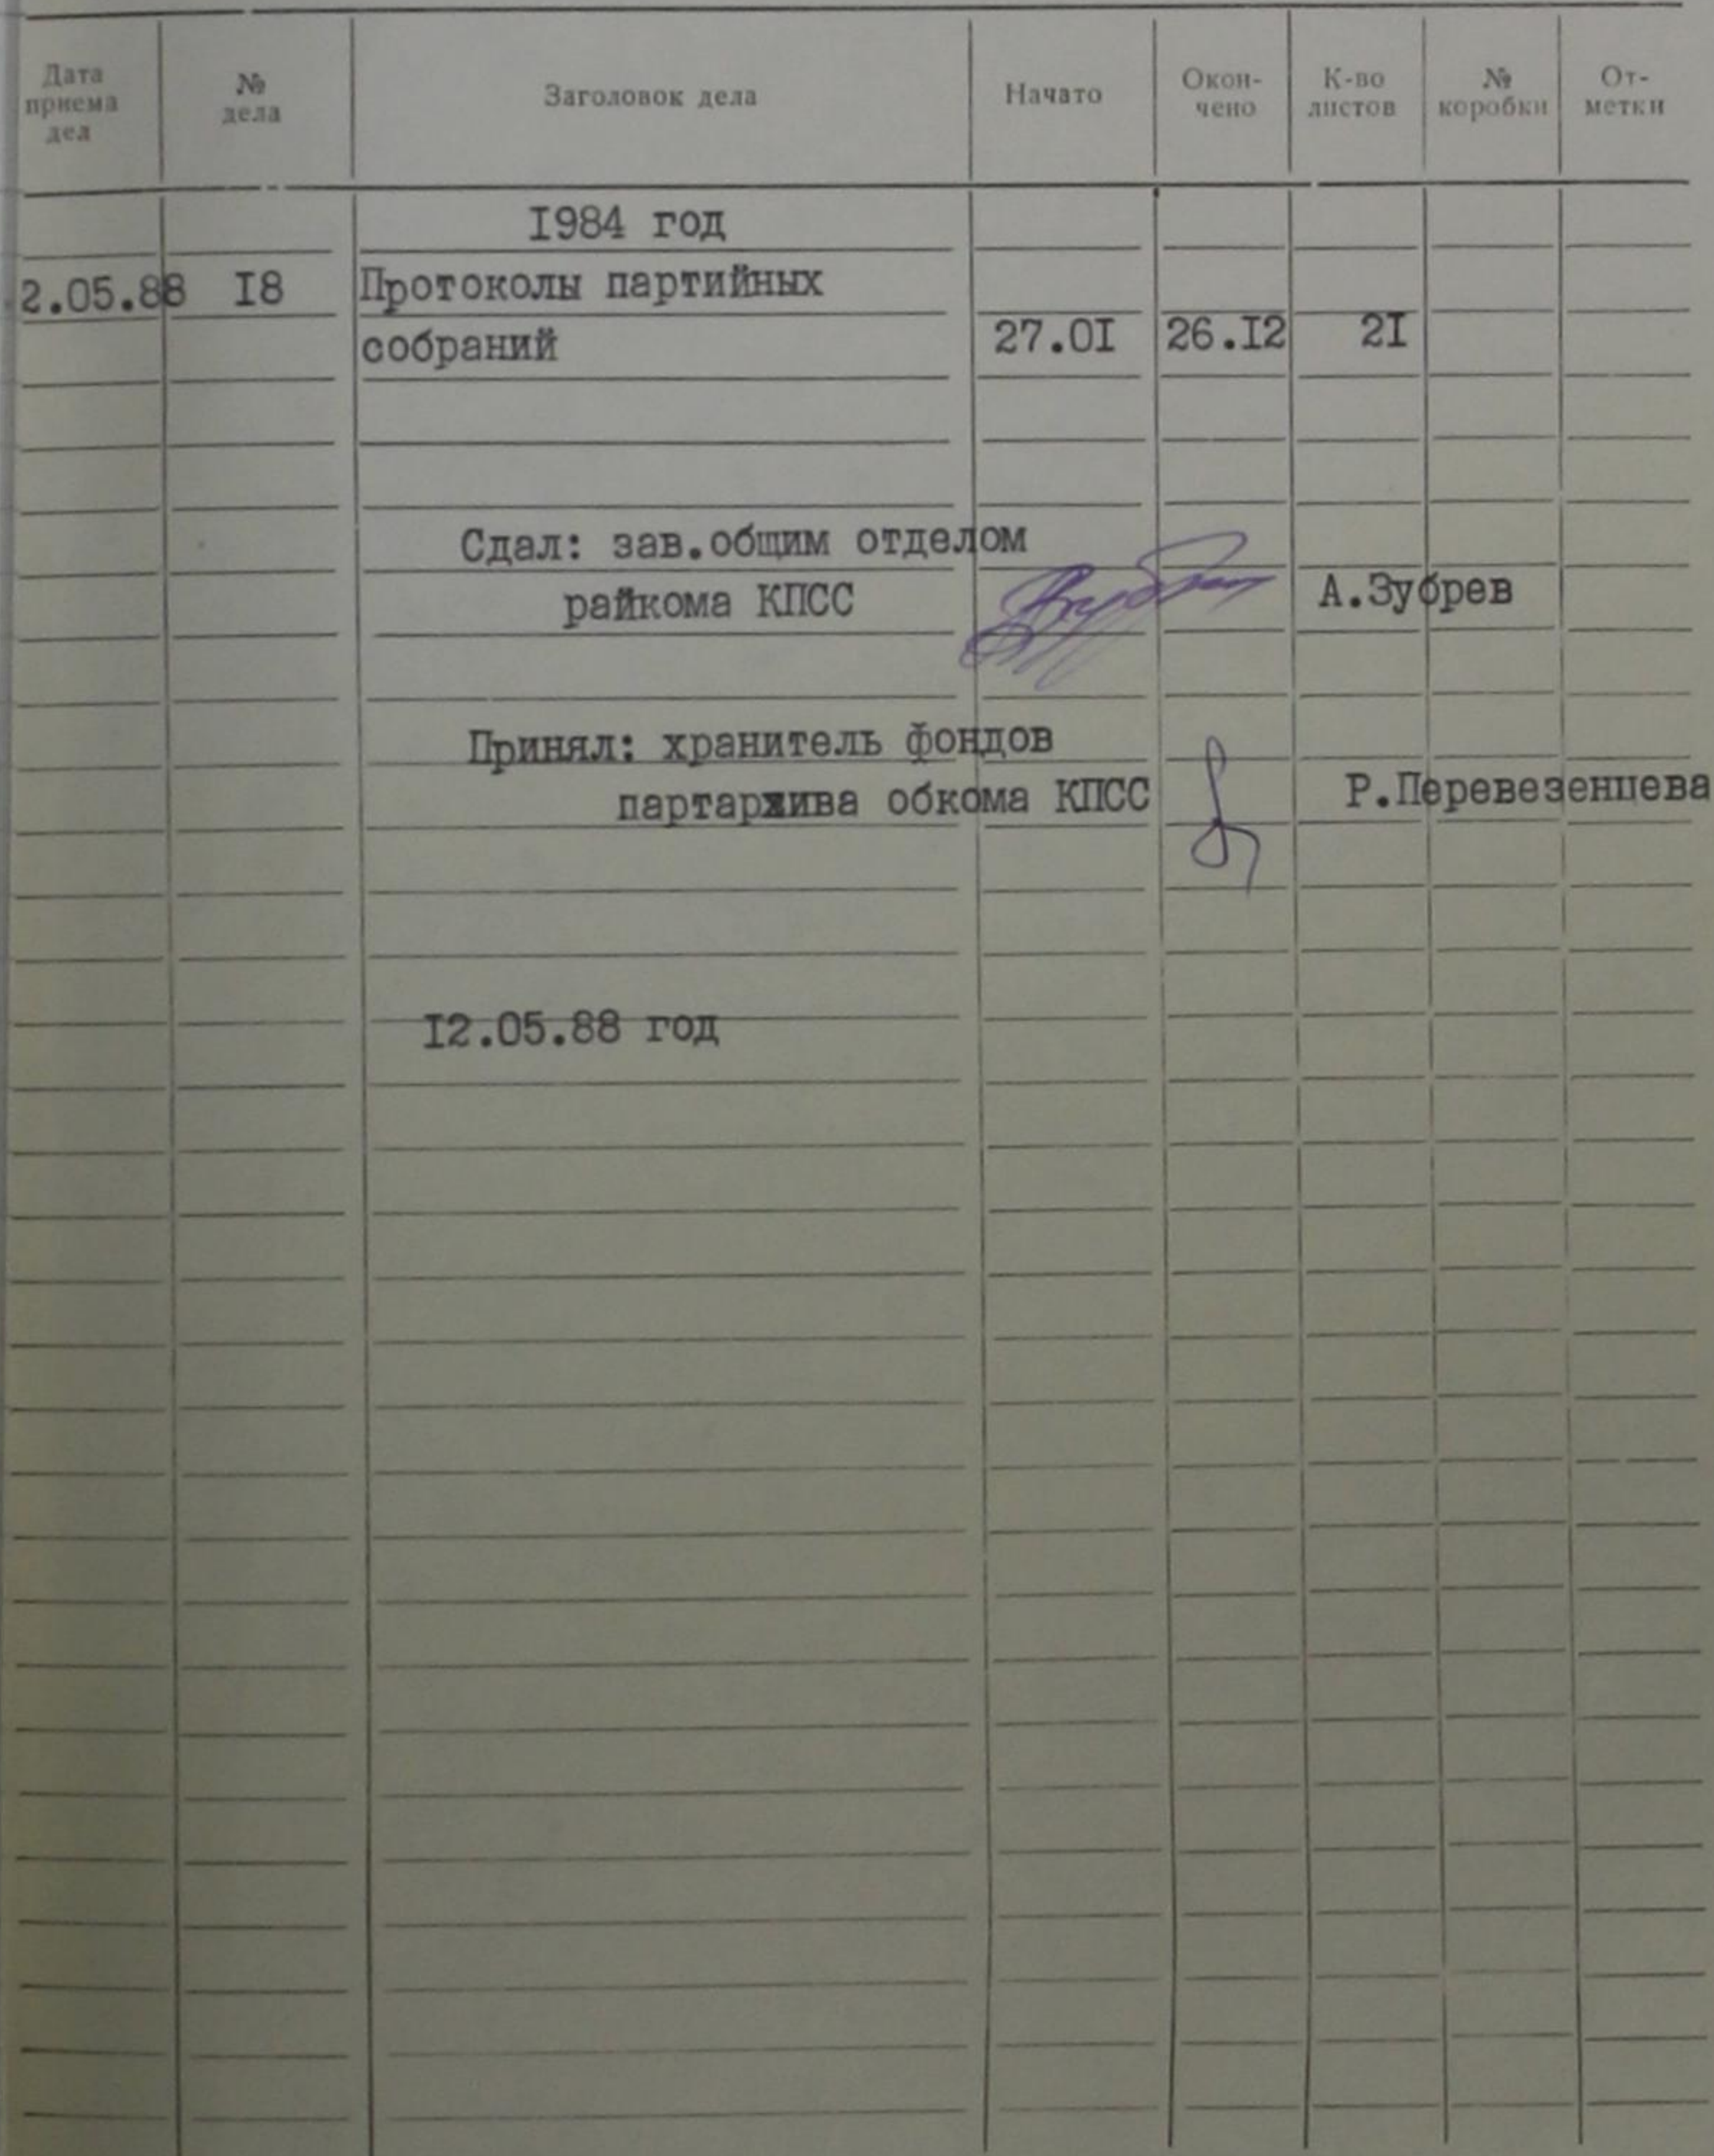 Дата приема дел № дела Заголовок дела Начато Окон- чено К-во листов № коробки От- метки
1984 год
2.05.88 18 Протоколы партийных
собраний 27.01 26.12 21
Сдал: зав.общим отделом
райкома КПСС А.Зубрев
Принял: хранитель фондов
партархива обкома КПСС Р.Перевезенцева
12.05.88 год